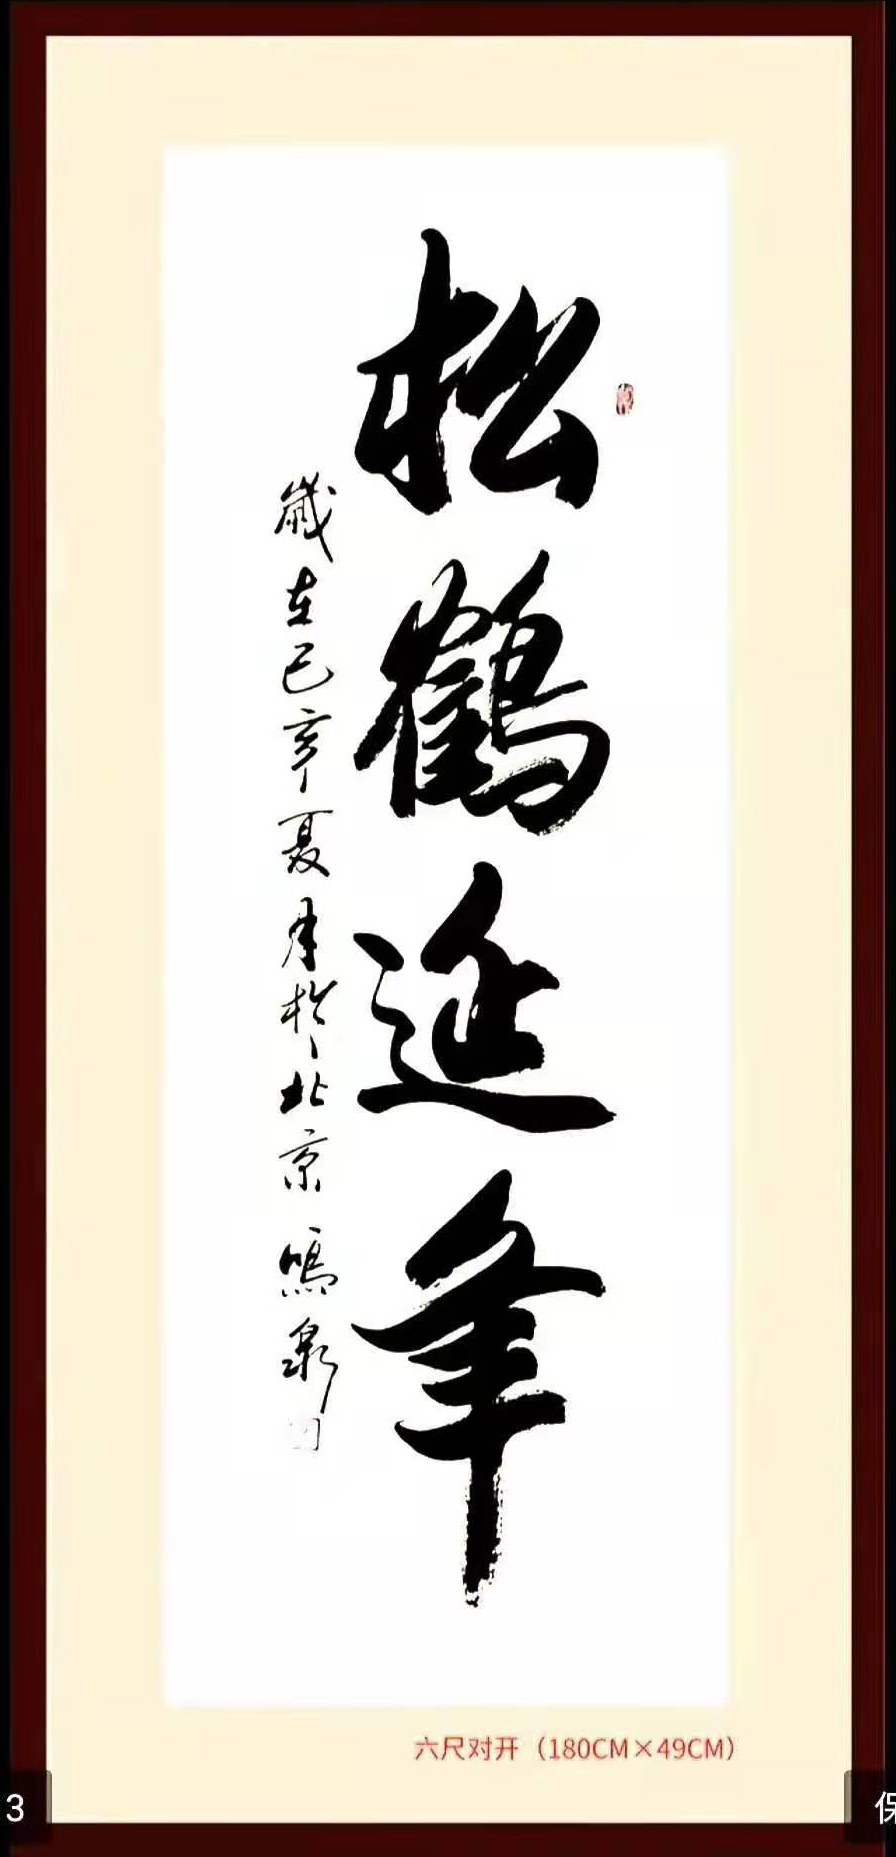 松鹤延年
歲在己亥夏月於北京 鳴泉
六尺对开（180CM×49CM）
3
保